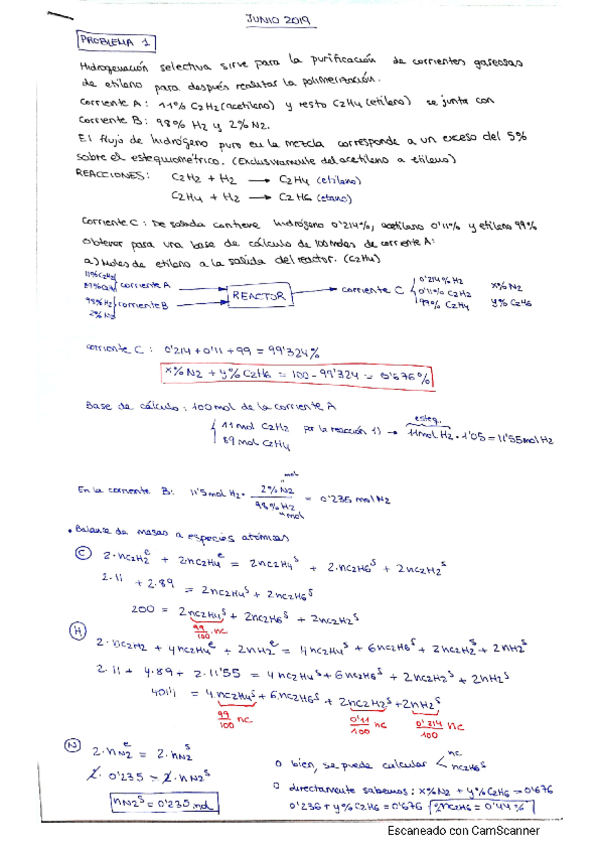 JUNIO 2019
PROBLEMA 1
Hidrogenación selectiva sirve para la purificación de corrientes gaseosas
de etileno para después realizar la polimerización.
Corriente A: 11% C2H2 (acetileno) y resto C2H4 (etileno) se junta con
corriente B: 98% H2 y 2% N2.
El flujo de hidrógeno puro en la mezcla corresponde a un exceso del 5%
sobre el estequiométrico. (Exclusivamente del acetileno a etileno)
REACCIONES: C2H2 + H2 → C2H4 (etileno)
C2H4 + H2 → C2H6 (etano)
Corriente C: De salida contiene hidrógeno 0'214%, acetileno 0'11% y etileno 99%
Obtener para una base de cálculo de 100 moles de corriente A:
a) Moles de etileno a la salida del reactor. (C2H4)
11% C2H2
89% C2H4
corriente A
98% H2
2% N2
corriente B
REACTOR
corriente C
0'214% H2 x% N2
0'11% C2H2
99% C2H4 y% C2H6
corriente C: 0'214 + 0'11 + 99 = 99'324%
x% N2 + y% C2H6 = 100 - 99'324 = 0'676%
Base de cálculo: 100 mol de la corriente A
11 mol C2H2 por la reacción 1) → esteq. 11 mol H2 · 1'05 = 11'55 mol H2
89 mol C2H4
En la corriente B: 11'5 mol H2 · 2% N2 mol / 98% H2 mol = 0'235 mol N2
• Balance de masas a especies atómicas
(C) 2·nC2H2^e + 2·nC2H4^e = 2nC2H4^s + 2·nC2H6^s + 2nC2H2^s
2·11 + 2·89 = 2nC2H4^s + 2nC2H6^s
200 = 2nC2H4^s + 2nC2H6^s + 2nC2H2^s
99/100 · nc
(H) 2·nC2H2 + 4nC2H4^e + 2nH2^e = 4nC2H4^s + 6nC2H6^s + 2nC2H2^s + 2nH2^s
2·11 + 4·89 + 2·11'55 = 4nC2H4^s + 6nC2H6^s + 2nC2H2^s + 2nH2^s
401'1 = 4nC2H4^s + 6·nC2H6^s + 2nC2H2^s + 2nH2^s
99/100 nc 0'11/100 nc 0'214/100 nc
(N) 2·nN2^e = 2·nN2^s
2·0'235 = 2·nN2^s
nN2^s = 0'235 mol
o bien, se puede calcular < nc
nC2H6^s
o directamente sabemos: x% N2 + y% C2H6 = 0'676
0'236 + y% C2H6 = 0'676 2nC2H6 = 0'44%
Escaneado con CamScanner